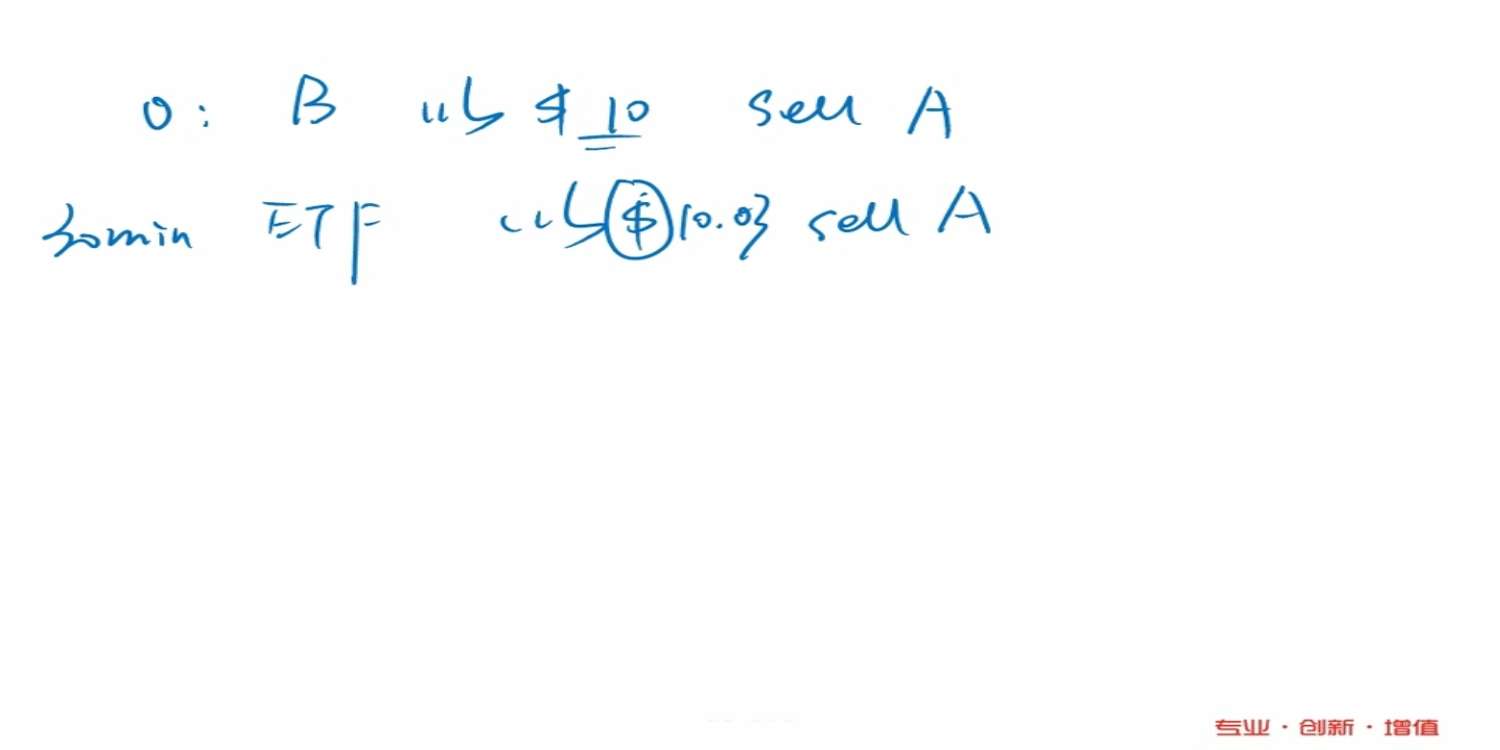 0: B 以 $10 sell A
30min ETF 以 $10.03 sell A
专业·创新·增值